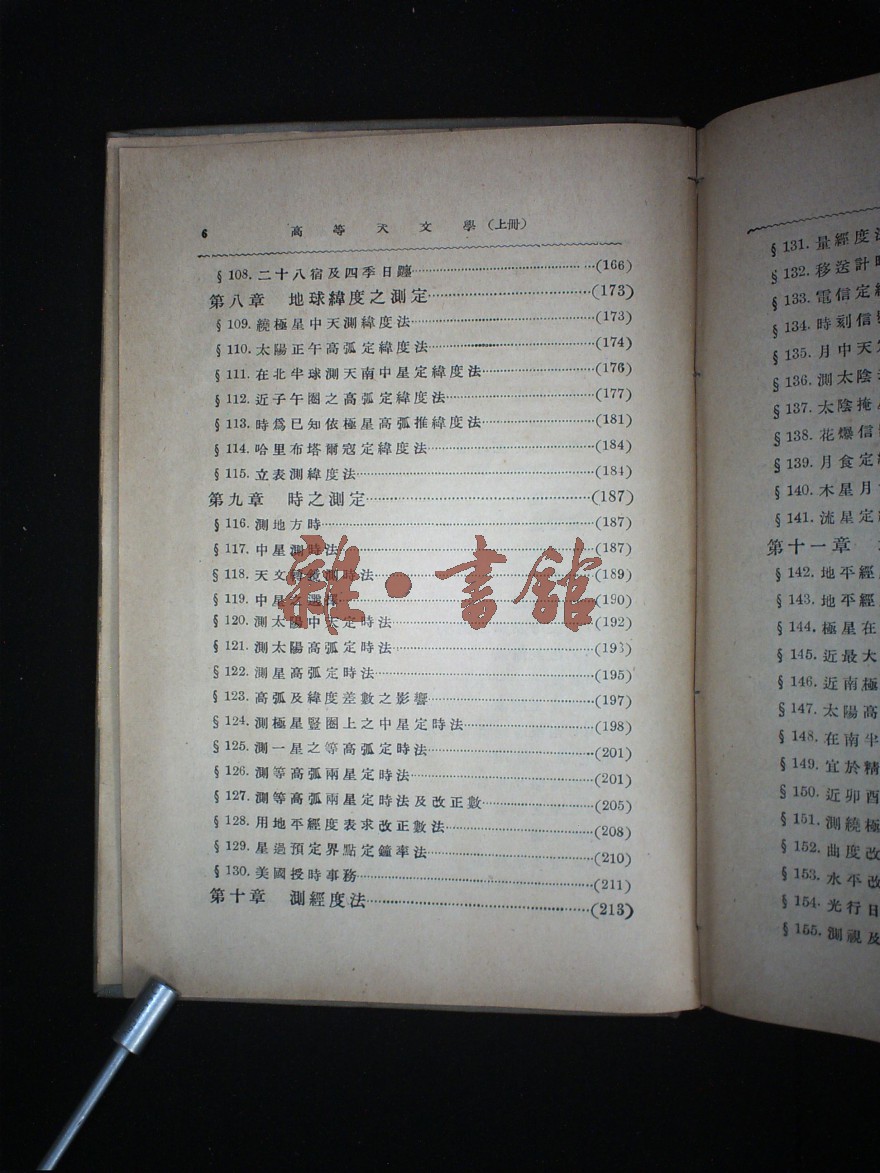 6 高等天文學(上冊)
§108. 二十八宿及四季日躔……(166)
第八章 地球緯度之測定……(173)
§109. 繞極星中天測緯度法……(173)
§110. 太陽正午高弧定緯度法……(174)
§111. 在北半球測天南中星定緯度法……(176)
§112. 近子午圈之高弧定緯度法……(177)
§113. 時爲已知依極星高弧推緯度法……(181)
§114. 哈里布塔爾寇定緯度法……(184)
§115. 立表測緯度法……(184)
第九章 時之測定……(187)
§116. 測地方時……(187)
§117. 中星測時法……(187)
§118. 天文轉鏡測時法……(189)
§119. 中星之選擇……(190)
§120. 測太陽中天定時法……(192)
§121. 測太陽高弧定時法……(193)
§122. 測星高弧定時法……(195)
§123. 高弧及緯度差數之影響……(197)
§124. 測極星豎圈上之中星定時法……(198)
§125. 測一星之等高弧定時法……(201)
§126. 測等高弧兩星定時法……(201)
§127. 測等高弧兩星定時法及改正數……(205)
§128. 用地平經度表求改正數法……(208)
§129. 星過預定界點定鐘率法……(210)
§130. 美國授時事務……(211)
第十章 測經度法……(213)
雜·書館
§131. 量經度法
§132. 移送計時
§133. 電信定經
§134. 時刻信號
§135. 月中天定
§136. 測太陰
§137. 太陰掩
§138. 花爆信
§139. 月食定
§140. 木星月
§141. 流星定
第十一章
§142. 地平經
§143. 地平經
§144. 極星在
§145. 近最大
§146. 近南極
§147. 太陽高
§148. 在南半
§149. 宜於精
§150. 近卯酉
§151. 測繞極
§152. 曲度改
§153. 水平改
§154. 光行日
§155. 測視及